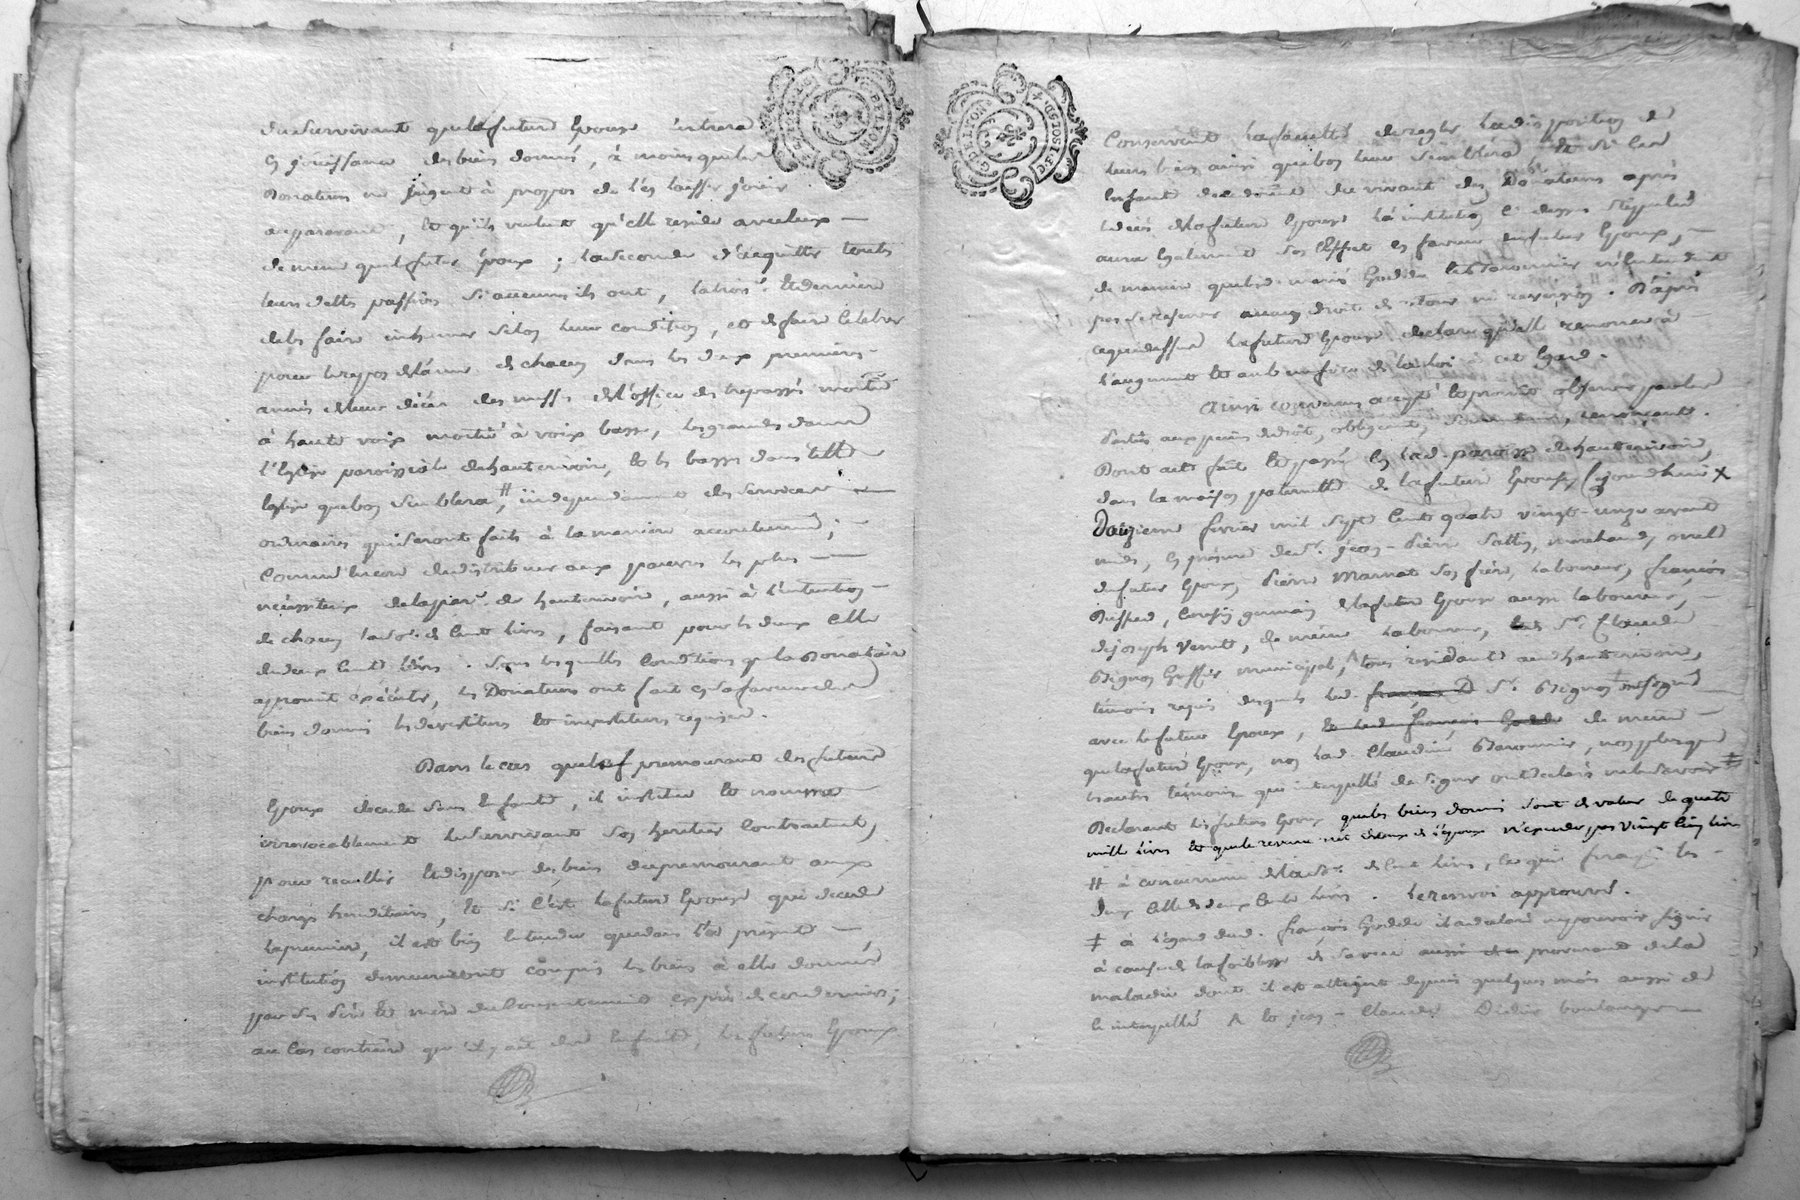 du survivant que la future Epouse entrera
En jouissance des biens donnés, à moins que les
Donateurs ne jugent à propos de l'en laisser jouir
auparavant, et qu'ils veulent qu'elle reside avec eux —
de meme que le futur Epoux ; la seconde d'acquitter toutes
leurs dettes passives si aucunes ils ont, la trois.e et derniere
de les faire inhumer selon leur condition, et de faire celebrer
pour le repos de l'ame de chacun dans les deux premieres
années de leur décès des messes de l'office des trepassés moitié
à haute voix moitié à voix basse, les grandes dans
l'Eglise paroissiale de hauterivoire, et les basses dans telle
Eglise que bon semblera, # independamment des services —
ordinaires qui seront faits à la maniere accoutumée ; —
Comme Encore de distribuer aux pauvres les plus —
necessiteux de la par.se de hauterivoire, aussi à l'intention —
de chacun la so.e de Cent livres, faisant pour les deux Celle
de deux Cent livres . Sous lesquelles conditions que la Donataire
a promit exécuter, les Donateurs ont fait en sa faveur des
biens donnés les devestitures et investitures requises .
Dans le cas que le premourant des futurs
Epoux decede sans Enfants, il institue et nomme
irrevocablement le survivant son heritier Contractuel,
pour recueillir et disposer des biens du premourant aux
charges hereditaires, Et si C'est la future Epouse qui decede
la premiere, il est bien Entendu que dans l'ad présente —,
institution demeureront compris les biens à elle donnés
par ses Père et mère du Consentement exprès de ces derniers ;
au Cas contraire qu'il y ait des Enfants, les futurs Epoux
G. DE LYON
Conservent la faculté de regler la disposition de
leurs biens ainsi que bon leur semblera et si les
Enfants decedoient du vivant des Donateurs après
le décès de la future Epouse l'institution Ci dessus stipulée
aura Egalement son Effet en faveur du futur Epoux, —
de maniere que lesd. mariés Godde et Bavonnier n'Entendent
pas se reserver aucun droit de retour ni reversion . D'après
ce que dessus la future Epouse declare qu'elle renonce à
l'augment et au benefice de la loi à cet Egard .
Ainsi convenu accepté et promis observer par les
Parties aux peines de droit, obligeant, soumettant, renonçant .
Dont acte fait et passé en lad. paroisse de hauterivoire,
dans la maison paternelle de la future Epouse, Cejourdhuit x
Douzieme fevrier mil sept cent quatre vingt-onze avant
midi, En présence de s.r jean-Pierre , marchand,
du futur Epoux, Pierre Marnat son frère, laboureur, françois
, Cousin germain de la future Epouse aussi laboureur, —
de joseph , de meme laboureur, s.r Claude
Greffier municipal, tous residants aud. hauterivoire,
témoins requis desquels led. s.r soussigné
avec le futur Epoux, de meme —
que la future Epouse, non lad. Claudine Bavonnier, non plus que
les autres témoins qui interpellés de signer ont declarés ne le savoir ‡
Declarant les futurs Epoux que les biens donnés sont de valeur de quatre
mille livres et que le revenu net de ceux de l'epoux n'excede pas vingt Cinq livres
# à concurrence de la so.e de Cent livres, ce qui fera p.r les
deux Celle de deux Cents livres . le renvoi approuvé .
‡ à l'égard dud. françois Godde il a declaré ne pouvoir signer
à cause de la foiblesse de sa vue provenant de la
maladie dont il est atteint depuis quelques mois aussi de
ce interpellé et jean-Claude Didier boulanger —